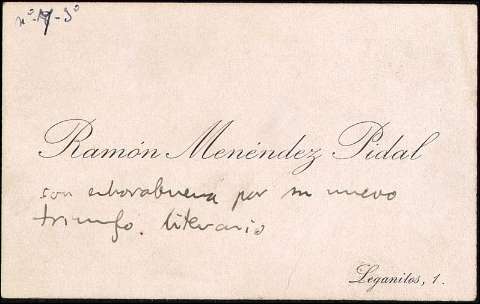 nº-17-3º
Ramón Menéndez Pidal
con enhorabuena por su nuevo
triunfo. literario
Leganitos, 1.